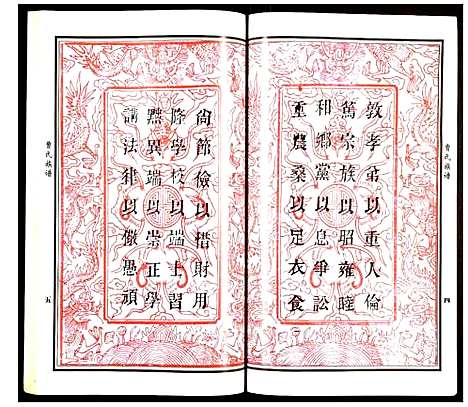 敦孝弟以重人倫
篤宗族以昭雍睦
和鄉黨以息爭訟
重農桑以足衣食
曹氏族谱
四
尚節儉以惜財用
隆學校以端士習
黜異端以崇正學
講法律以儆愚頑
曹氏族谱
五